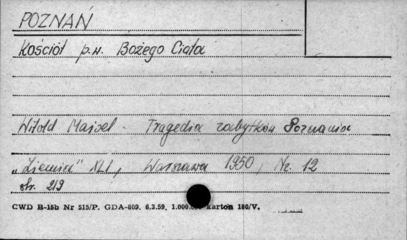 POZNAŃ
Kościół p.w. Bożego Ciała
Witold Maisel - Tragedia zabytków Poznania
„Ziemia" XLI, Warszawa 1950, Nr. 12
str. 219
CWD B-16b Nr 515/P. GDA-809. 6.3.59. 1.000.000 karton 180/V.